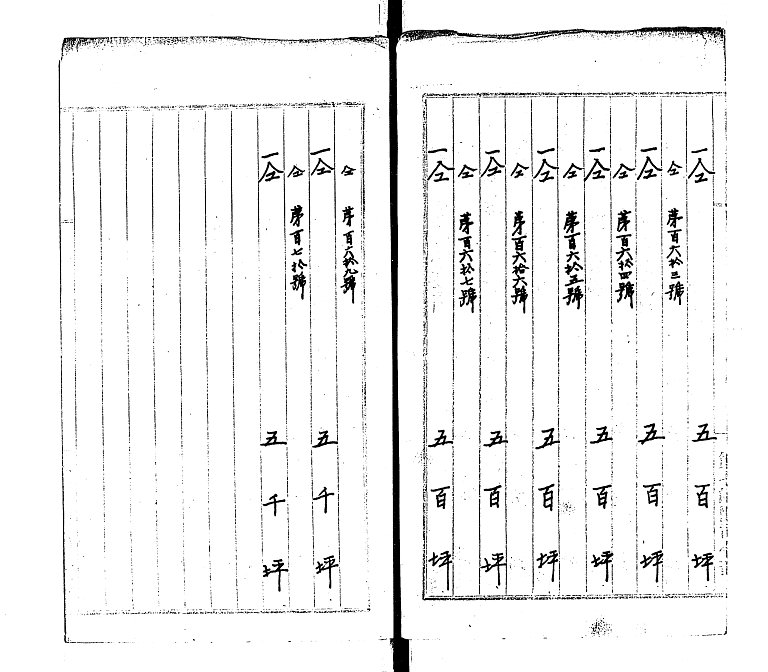 一仝 五百坪
仝 第百六拾三號
一仝 五百坪
仝 第百六拾四號
一仝 五百坪
仝 第百六拾五號
一仝 五百坪
仝 第百六拾六號
一仝 五百坪
仝 第百六拾七號
一仝 五百坪
仝 第百六拾九號
一仝 五千坪
仝 第百七拾號
一仝 五千坪